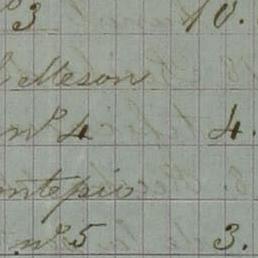 nº 3 10.
l Meson
nº 4 4.
ontepio
nº 5 3.